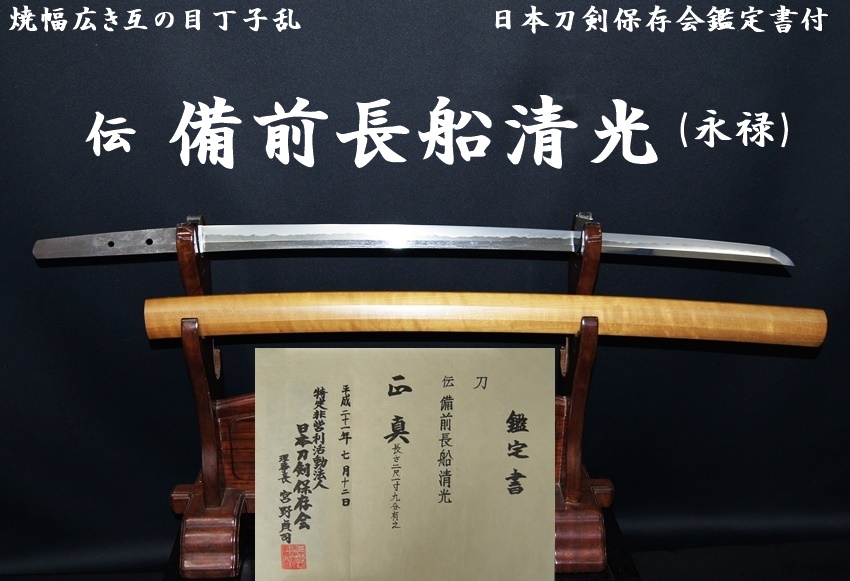 焼幅広き互の目丁子乱
日本刀剣保存会鑑定書付
伝 備前長船清光 (永禄)
鑑定書
刀
伝 備前長船清光
正真
長さ二尺一寸九分有之
平成二十一年七月十二日
特定非営利活動法人
日本刀剣保存会
理事長 宮野貞司